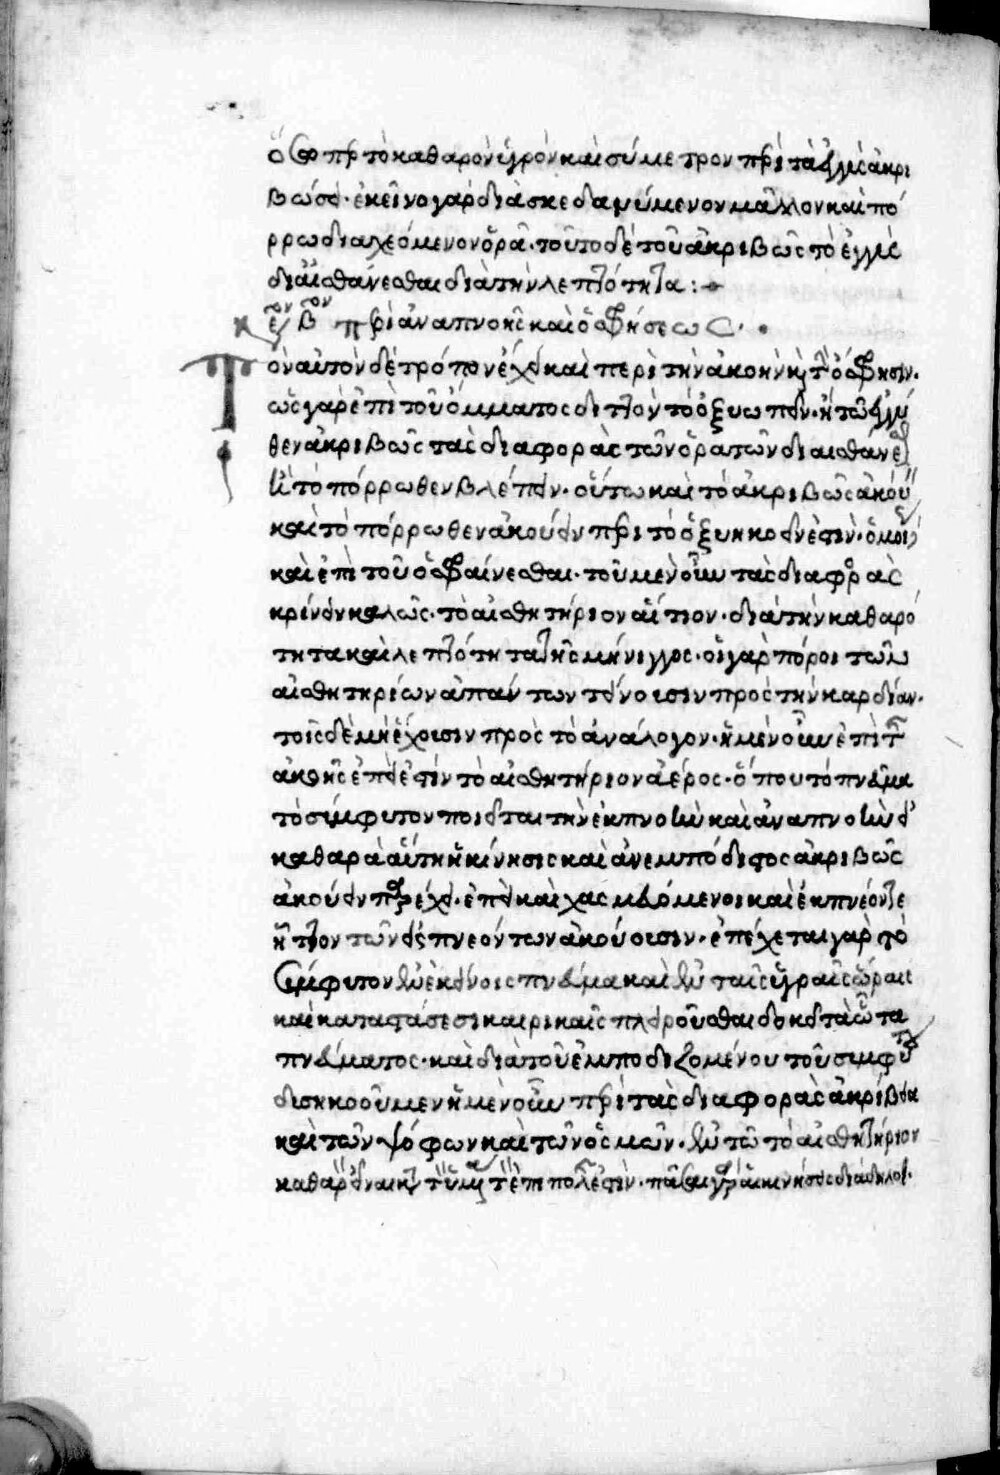 ὅσω περ τὸ καθαρὸν ὑγρὸν καὶ σύμετρον περὶ τὰ ἐγγὺς ἀκρι
βώσει· ἐκεῖνο γὰρ διασκεδαννύμενον μᾶλλον καὶ πό
ρρω διαχεόμενον ὁρᾶ· τοῦτο δὲ τοῦ ἀκριβῶς τὸ ἐγγὺς
διαισθάνεσθαι διὰ τὴν λεπτότητα :
κεφ β περὶ ἀναπνοῆς καὶ ὀσφρήσεως·
Τὸν αὐτὸν δὲ τρόπον ἔχει καὶ περὶ τὴν ἀκοὴν καὶ τὴν ὄσφρησιν·
ὡς γὰρ ἐπὶ τοῦ ὄμματος διττὸν τὸ ὀξυωπεῖν· ἢ τῶ ἐγγύ
θεν ἀκριβῶς τὰς διαφορὰς τῶν ὁρατῶν διαισθάνεσθαι
καὶ τὸ πόρρωθεν βλέπειν· οὕτω καὶ τὸ ἀκριβῶς ἀκούειν
καὶ τὸ πόρρωθεν ἀκούειν περὶ τὸ ὀξυηκοεῖν ἐστὶν· ὁμοίως
καὶ ἐπὶ τοῦ ὀσφραίνεσθαι· τοῦ μὲν οὖν τὰς διαφορὰς
κρίνειν καλῶς· τὸ αἰσθητήριον αἴτιον· διὰ τὴν καθαρό
τητα καὶ λεπτότητα τῆς μήνιγγος· οἱ γὰρ πόροι τῶν
αἰσθητηρίων ἁπάντων τείνουσιν πρὸς τὴν καρδίαν·
τοῖς δὲ μὴ ἔχουσιν πρὸς τὸ ἀνάλογον· ἡ μὲν οὖν ἐπὶ τῆς
ἀκοῆς ἐπεὶ ἐστὶν τὸ αἰσθητήριον ἀέρος· ὅπου τὸ πνεῦμα
τὸ σύμφυτον ποιεῖται τὴν ἐκπνοὴν καὶ ἀναπνοὴν εἰ
καθαρὰ αὕτη ἡ κίνησις καὶ ἀνεμπόδιστος ἀκριβῶς
ἀκούειν παρέχει· ἐπεὶ καὶ χασμώμενοι καὶ ἐκπνέοντες
ἧττον τῶν εἰσπνεόντων ἀκούουσιν· ἐπέχεται γὰρ τὸ
σύμφυτον ἐν ἐκείνοις πνεῦμα καὶ ἐν ταῖς ὑγραῖς ὥραις
καὶ καταστάσεσι καιρικαῖς πληροῦσθαι δοκεῖ τὰ ὦτα
πνεύματος· καὶ διὰ τοῦ ἐμποδιζομένου τοῦ συμφύτου
δυσηκοοῦμεν ἡ μὲν οὖν περὶ τὰς διαφορὰς ἀκρίβεια
καὶ τῶν ψόφων καὶ τῶν ὀσμῶν· ἐν τῶ τὸ αἰσθητήριον